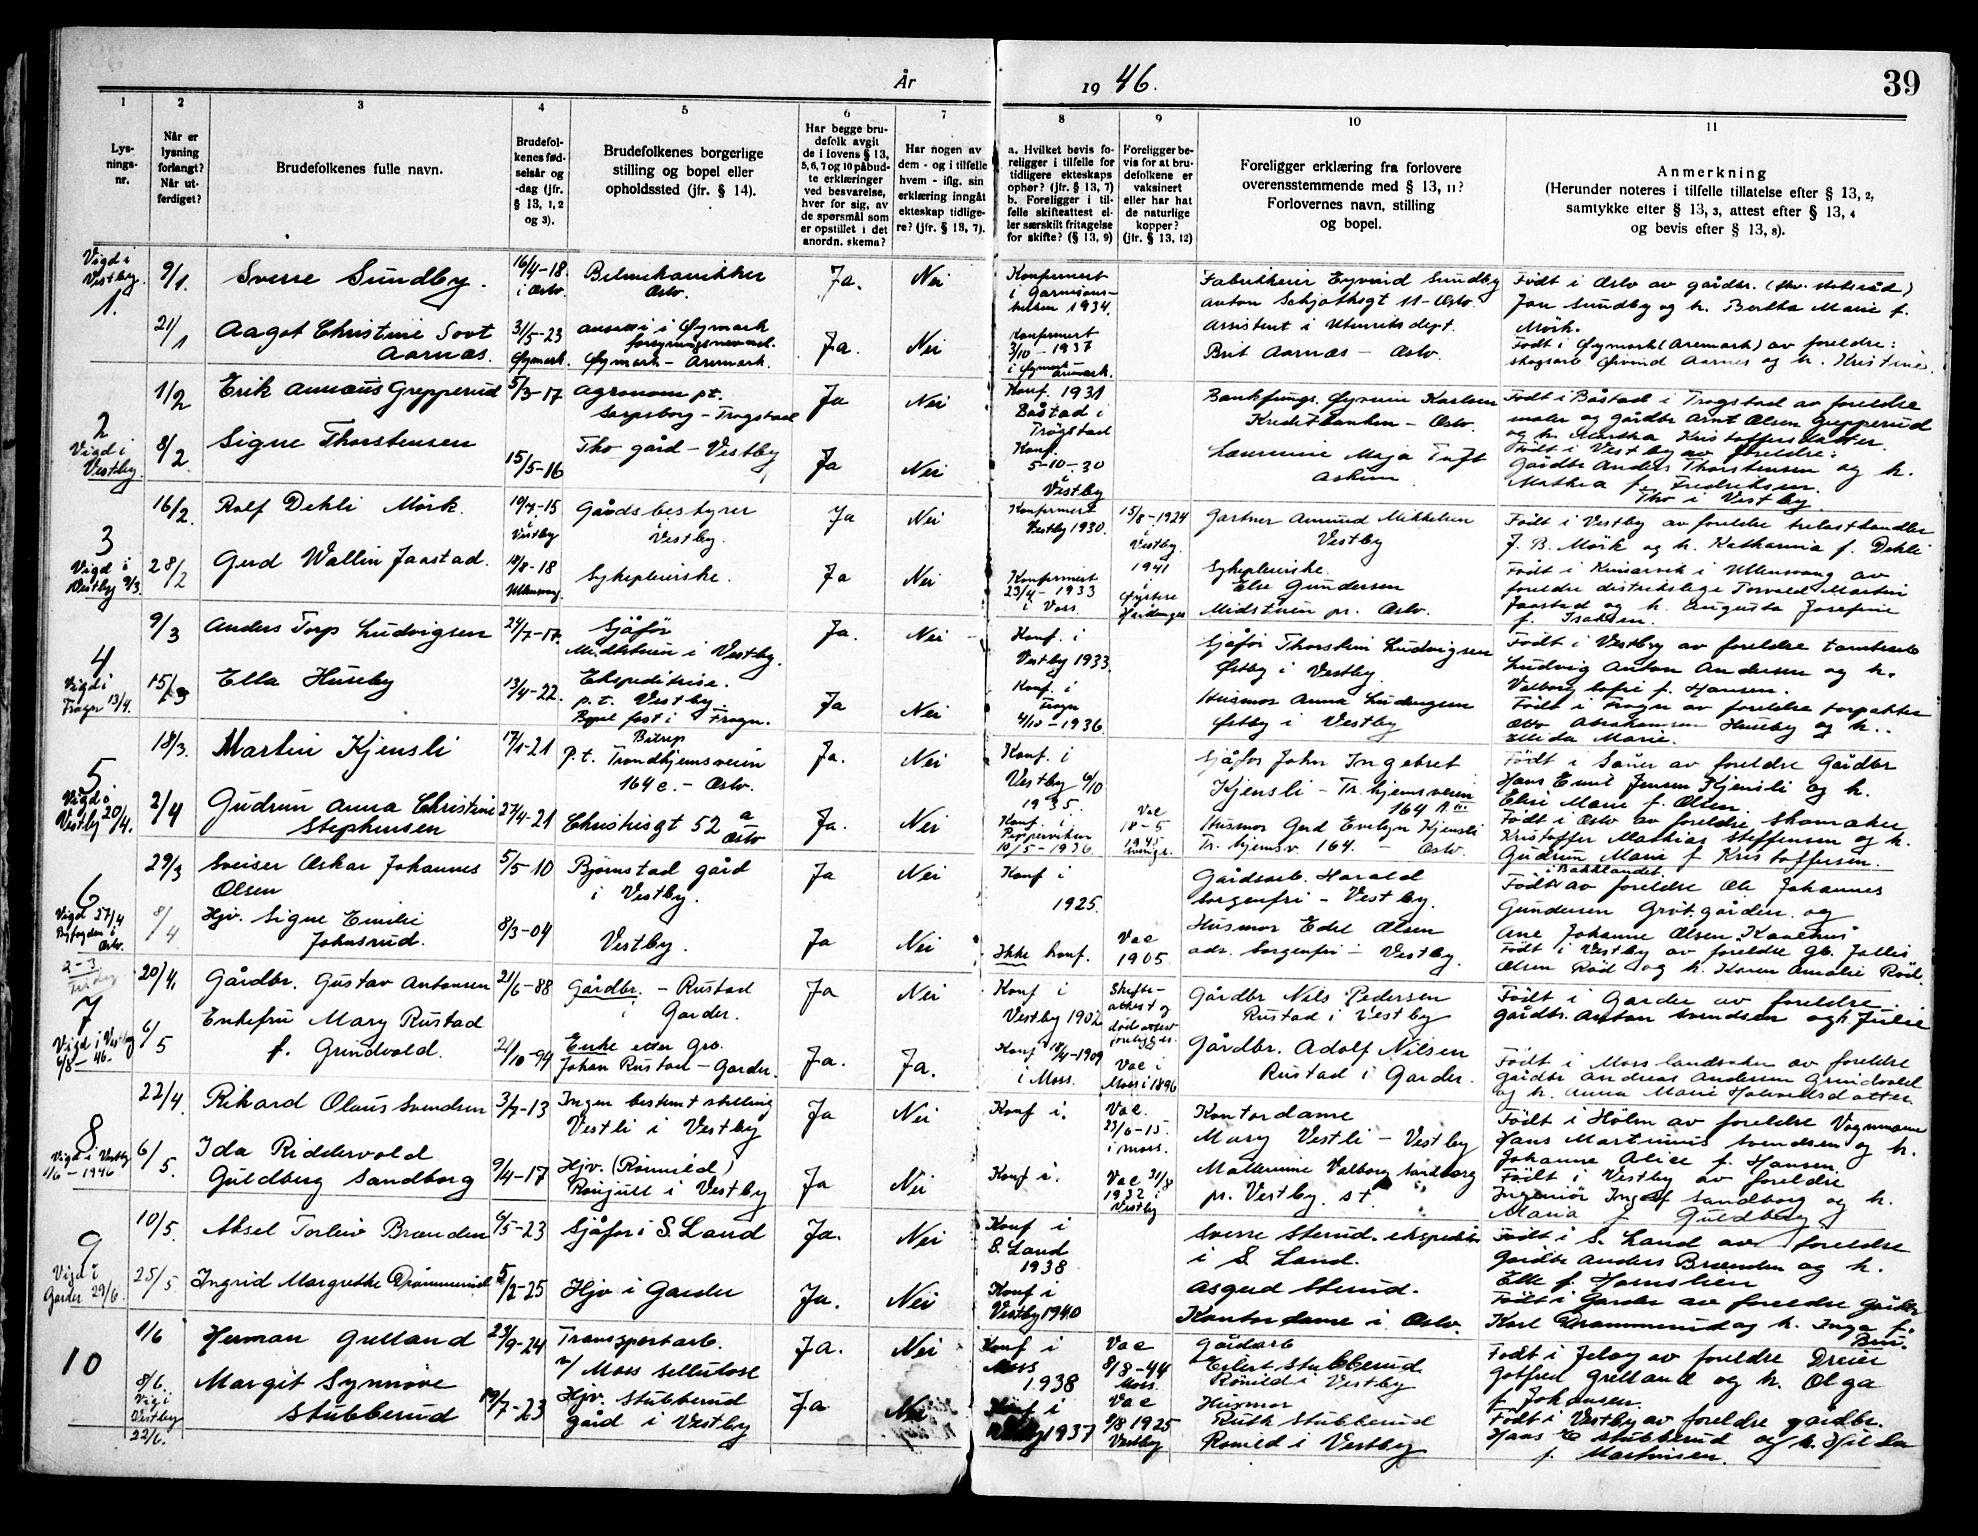 År 19 46. 39
1 2 3 4 5 6 7 8 9 10 11
Lysningsnr.
Når er lysning forlangt? Når utferdiget?
Brudefolkenes fulle navn.
Brudefolkenes fødselsår og -dag (jfr. § 13, 1, 2 og 3).
Brudefolkenes borgerlige stilling og bopel eller opholdssted (jfr. § 14).
Har begge brudefolk avgit de i lovens § 13, 5, 6, 7 og 10 påbudte erklæringer ved besvarelse, hver for sig, av de spørsmål som er opstillet i det anordn. skema?
Har nogen av dem - og i tilfelle hvem - iflg. sin erklæring inngått ekteskap tidligere? (jfr. § 13, 7).
a. Hvilket bevis foreligger i tilfelle for tidligere ekteskaps ophør? (jfr. § 13, 7) b. Foreligger i tilfelle skifteattest eller særskilt fritagelse for skifte? (§ 13, 9)
Foreligger bevis for at brudefolkene er vaksinert eller har hat de naturlige kopper? (jfr. § 13, 12)
Foreligger erklæring fra forlovere overensstemmende med § 13, 11? Forlovernes navn, stilling og bopel.
Anmerkning (Herunder noteres i tilfelle tillatelse efter § 13, 2, samtykke efter § 13, 3, attest efter § 13, 4 og bevis efter § 13, 8).
Vigd i Vestby. 1.
9/1. Sverre Sundby. 16/4-18. i Oslo. Bilmekanikker Oslo. Ja. Nei Konfirmert i Garnisons- 1934. Fabrikkeier Eyvind Sundby Anton Schjøthsgt 11 - Oslo. Født i Oslo av gårdbr. Jan Sundby og h. Bertha Marie f. Mörk.
21/1 Aagot Christine Soot Aarnæs. 31/5-23 Øymark. ansatt i Øymark Øymark - Aremark. Ja. Nei Konfirmert 3/10 - 1937 i Øymark Aremark. Assistent i Utenriksdept. Brit Aarnæs - Oslo. Født i Øymark (Aremark) av foreldre: Øivind Aarnes og h. Kristine.
2 Vigd i Vestby.
1/2 Erik Amaus Grepperud 5/3-17 Agronom pt. Sarpsborg - Trøgstad Ja Nei Konf. 1931 Båstad i Trøgstad Øyvin Karlsen Kreditbanken - Oslo. Født i Båstad i Trøgstad av foreldre maler og gårdbr Arnt Olsen Grepperud og h. Martha Kristoffersdatter.
8/2. Signe Thorstensen 15/5-16 Tho gård - Vestby Ja Nei Konf. 5-10-30 Vestby Laurenine Maja Toft Askim Født i Vestby av foreldre: Gårdbr Anders Thorstensen og h. Mathea f. Fredriksen. Tho i Vestby.
3 Vigd i Vestby 9/3.
16/2. Rolf Dehli Mörk. 19/7-15 Vestby Gårdsbestyrer i Vestby. Ja Nei Konfirmert Vestby 1930. 15/8-1924 Vestby. Gartner Amund Mikkelsen Vestby Født i Vestby av foreldre trelasthandler J. B. Mörk og h. Katharina f. Dehli
28/2 Gerd Wallin Jaastad. 10/8-18 Ullensvang. Sykepleierske. Ja Nei Konfirmert 23/4 - 1933 i Voss. 1941 i Øystese Hardanger Sykepleierske. Else Gundersen Midstuen pr. Oslo. Født i Kinsarvik i Ullensvang av foreldre distriktslege Torvald Martin Jaastad og h. Augusta Josefine f. Isaksen.
4 Vigd i Frogn 13/4.
9/3 Anders Torp Ludvigsen 24/7-17. Sjåfør i Vestby. Ja. Nei Konf. i Vestby 1933. Sjåfør Thorstein Ludvigsen Østby i Vestby. Født i Vestby av foreldre tomtearb Ludvig Anton Andersen og h. Valborg Sofie f. Hansen.
15/3 Ella Huseby 13/4-22. Ekspeditrise. p.t. Vestby. Bopel fast i Frogn. Ja Nei Konf. i Frogn 4/10-1936. Husmor Anna Ludvigsen Østby i Vestby Født i Frogn av foreldre forpakter Otto Abrahamsen Huseby og h. Ellida Marie.
5 Vigd i Vestby 20/4.
18/3. Martin Kjensli 17/1-21 Bitrap p.t. Trondhjemsveien 164 c. - Oslo. Ja. Nei Konf. i Vestby 6/10 1935. Sjåfør John Ingebret Kjensli - Tr.hjemsveien 164 A III Født i Såner av foreldre Gårdbr Hans Emil Jensen Kjensli og h. Elise Marie f. Olsen.
2/4 Gudrun Anna Christine Stephensen 27/4-21 Christiesgt 52 a Oslo Ja. Nei Konf. i Piperviken 10/5-1936. Vac 18-5 1945 Husmor Gerd Evelyn Kjensli Tr.hjemsv. 164. - Oslo. Født i Oslo av foreldre skomaker Kristoffer Mathias Steffensen og h. Gudrun Marie f Kristoffersen.
6 Vigd 27/4 Byfogden i Oslo.
29/3 Sveiser Oskar Johannes Olsen 5/5-10 Bjørnstad gård i Vestby. Ja Nei Konf i 1925. Gårdsarb. Harald Sorgenfri - Vestby. Født i Bakklandet. av foreldre Ole Johannes Gundersen Gröt.gården. og Ane Johanne Olsen "Kanehus"
8/4 Hjv. Signe Emilie Johnsrud. 8/3-04 Vestby. Ja Nei Ikke konf. Vac 1905. Husmor Edel Olsen adr. Sorgenfri - Vestby. Født i Vestby av foreldre gb. Jullis Olsen Rød og h. Karen Amalie Rød.
2-3
7 Vigd i Vestby 6/8-46.
20/4. Gårdbr. Gustav Antonsen 21/6-88 Gårdbr. - Rustad i Garder. Ja Nei Konf i Vestby 1902 Skifte-attest og dödsattest foreligger. Gårdbr Nils Pedersen Rustad i Vestby Født i Garder av foreldre. gårdbr. Anton Svendsen og h. Julie
6/5 Enkefru Mary Rustad f. Grindvold. 21/10-94 Enke etter gbr. Johan Rustad - Garder. Ja. Ja. Konf 18/4-1909 i Moss. Vac i Moss i 1896 Gårdbr. Adolf Nilsen Rustad i Garder. Født i Moss landsokn av foreldre gårdbr Andreas Andersen Grindvold og h. Anna Marie Halvorsdatter
8 Vigd i Vestby 1/6-1946
22/4. Rikard Olaus Svendsen 3/7-13 Ingen bestemt stilling Vestli i Vestby Ja Nei Konf i. Vac. 23/6-15. i Moss. Kontordame Mary Vestli - Vestby Født i Hölen av foreldre Vognmann Hans Martinius Svendsen og h. Johanne Alice f. Hansen.
6/5. Ida Riddervold Guldberg Sandborg 9/4-17 Hjv. (Römild) Roujull i Vestby Ja Nei Konf i. Vac 31/8 1932 i Vestby Valborg Sandborg pr. Vestby st. Født i Vestby av foreldre Ingeniør Ingolf Sandborg og h. Maria f Guldberg
9 Vigd i Garder 29/6.
10/5. Aksel Torleiv Brænden 6/5-23 Sjåfør i S. Land Ja. Nei Konf i S. Land 1938 Sverre Sterud. ekspeditør i S. Land. Født i S. Land av foreldre Gårdbr Anders Brænden og h. Elle f. Hamslien
25/5 Ingrid Margrethe Drømmerud 5/2-25 Hjv i Garder Ja. Nei Konf i Vestby 1940 Asgerd Sterud. Kontordame i Oslo. Født i Garder av foreldre Gårdbr Karl Drømmerud og h. Inga f. Bru.
10
1/6 Herman Grelland 23/9-24 Transportarb. v/ Moss sellulose Ja. Nei Konf i Moss 1938 Vac 8/8-44 Moss. Gårdarb Eilert Stubberud Römild i Vestby Født i Jeløy av foreldre Dreier Gotfred Grelland og h. Olga f. Johansen.
8/6. Vig i Vestby 22/6. Margit Synnöve Stubberud 19/7-23 Hjv. Stubberud gård i Vestby Ja Nei Konf i Vestby 1937 Vac 9/8 1925 Vestby Husmor Ruth Stubberud Römild i Vestby Født i Vestby av foreldre gårdbr. Hans E Stubberud og h. Hilda f. Martinsen.